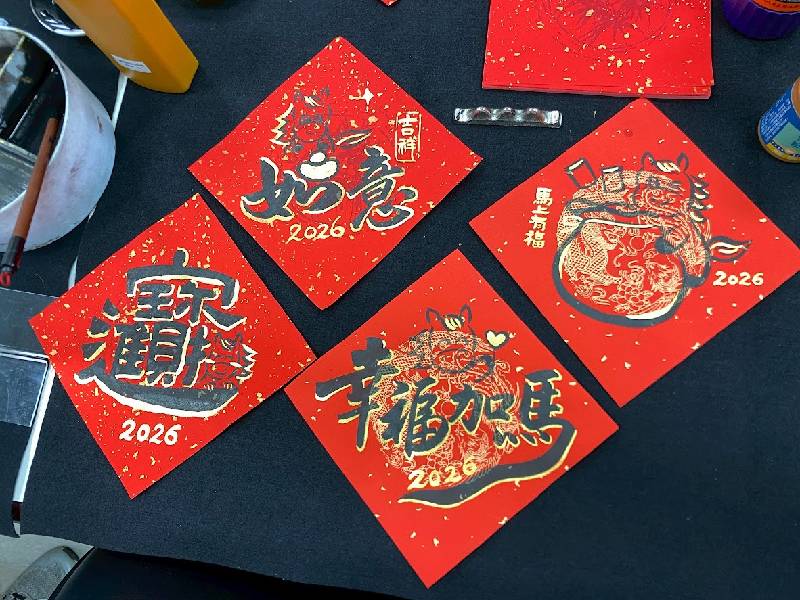 吉祥
如意
2026
馬上有福
2026
招財進寶
2026
幸福加馬
2026